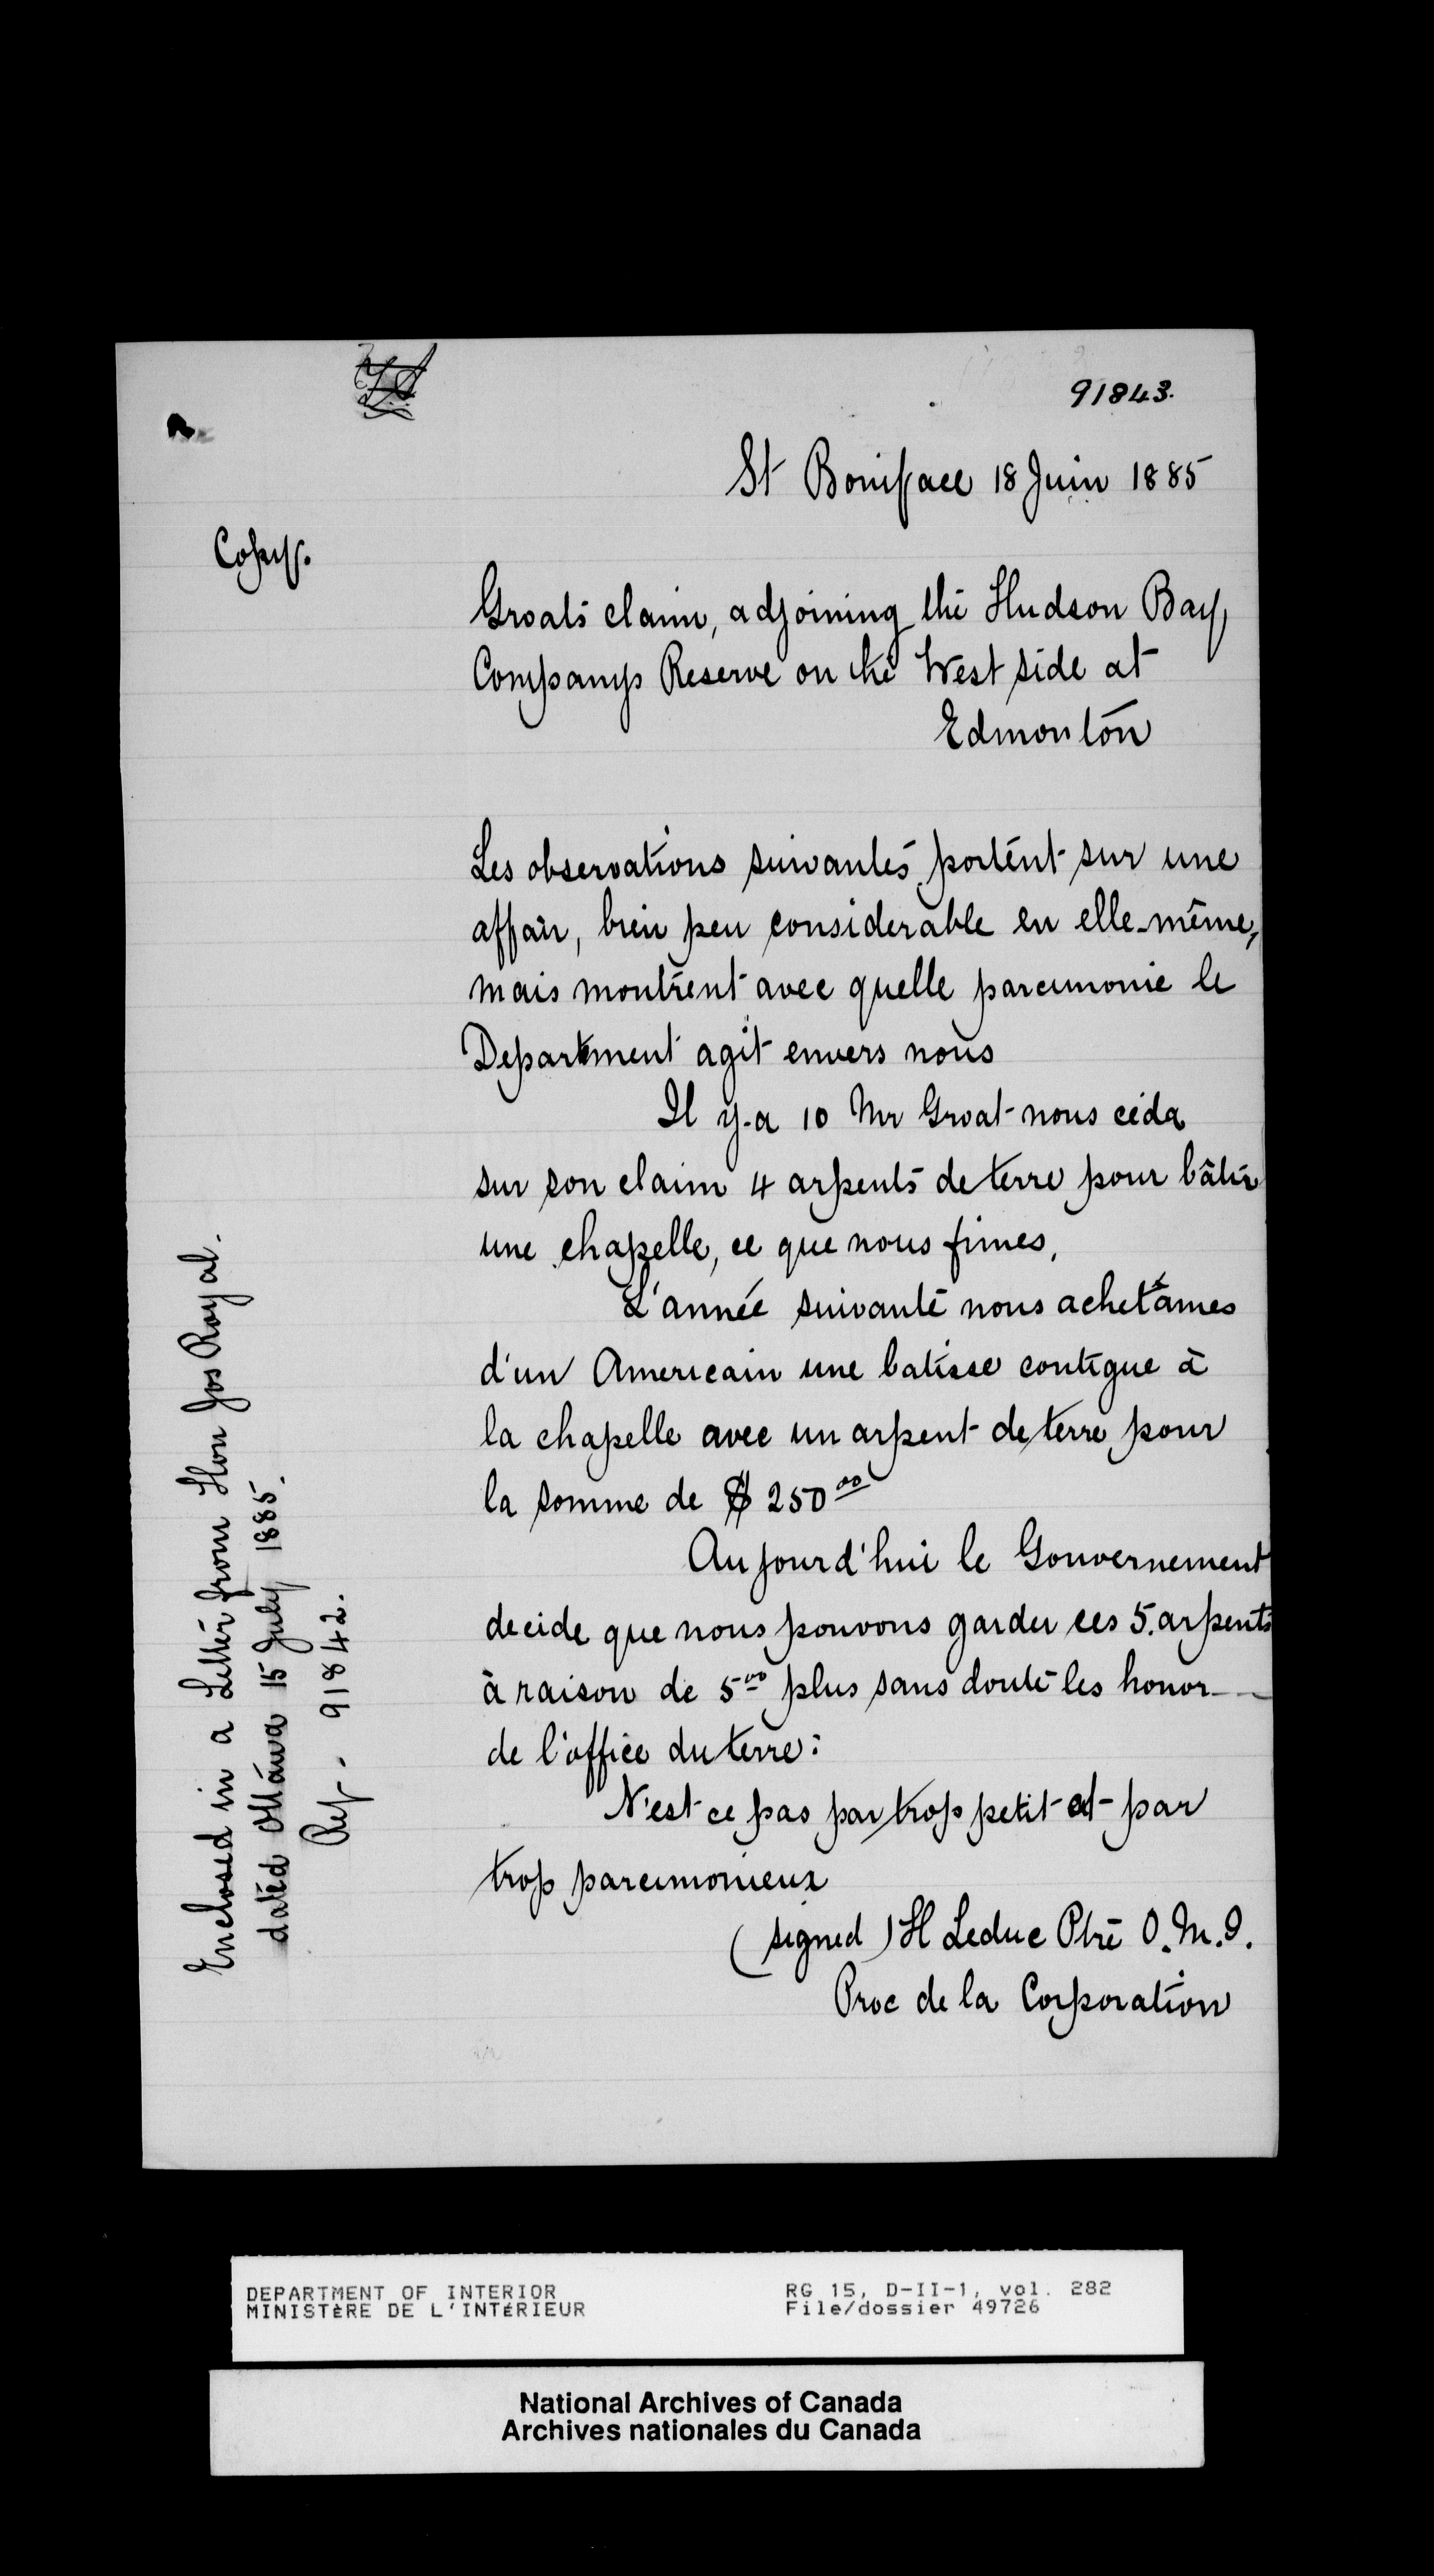 91843.
St Boniface 18 Juin 1885
Copy.
Groats claim, adjoining the Hudson Bay
Companys Reserve on the West side at
Edmonton
Les observations suivantes portent sur une
affair, bien peu considerable en elle-même,
mais montrent avec quelle parcimonie le
Department agit envers nous
Il y-a 10 Mr Groat nous céda
sur son claim 4 arpents de terre pour bâtir
une chapelle, ce que nous fimes,
L'année suivante nous achetâmes
d'un Americain une batisse contigue à
la chapelle avec un arpent de terre pour
la somme de $ 250 00
Aujourd'hui le Gouvernement
decide que nous pouvons garder ces 5. arpents
à raison de 5 00 plus sans doute les honor-
de l'office du terre:
N'est ce pas par trop petit et par
trop parcimonieux
(signed) H Leduc Ptre O.M.I.
Proc de la Corporation
Enclosed in a Letter from Hon Jos Royal.
dated Ottawa 15 July 1885.
Ref. 91842.
DEPARTMENT OF INTERIOR
MINISTÈRE DE L'INTÉRIEUR
RG 15, D-II-1, vol. 282
File/dossier 49726
National Archives of Canada
Archives nationales du Canada